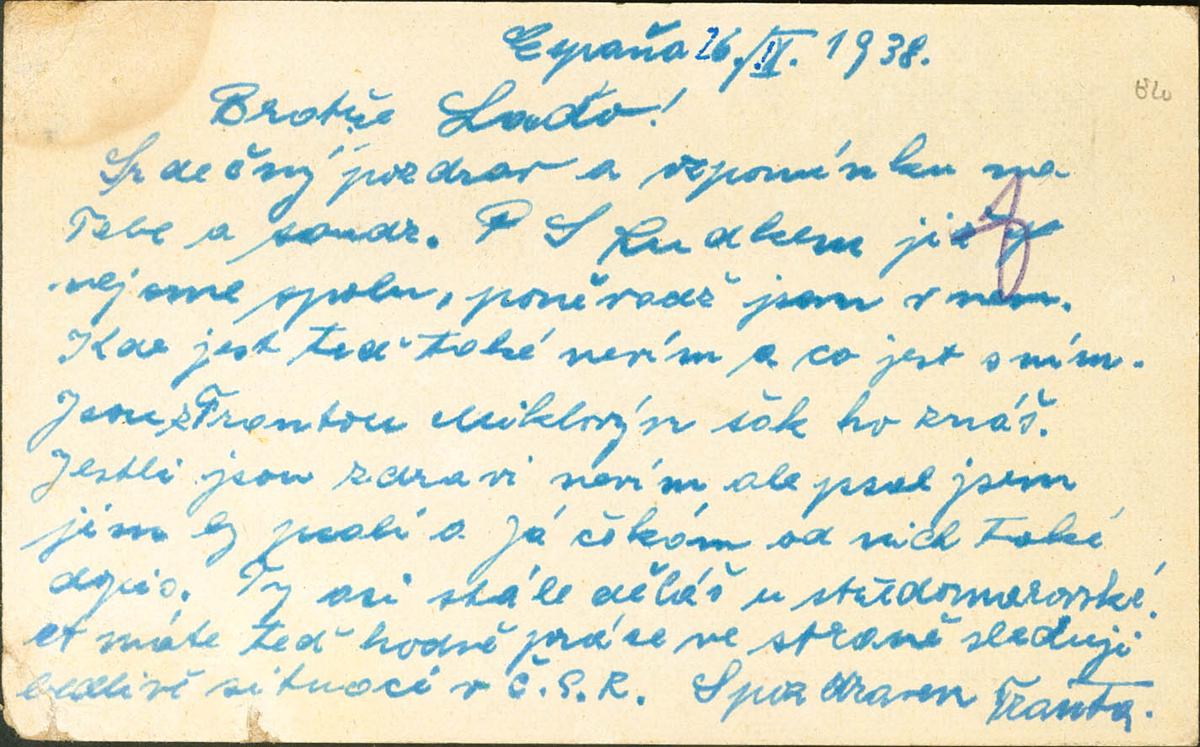 España 26./IV. 1938.
Bratře Laďo!
Srdečný pozdrav a vzpomínku na
Tebe a soudr. P S Ludkem již
nejsme spolu, poněvadž jsem v nem.
Kde jest teď také nevím a co jest sním.
Jsou z Frantou však ho znáš.
Jestli jsou zdraví nevím ale psal jsem
jim by psali a Já čekám od nich také
dopis. Ty asi stále děláš u středomoravské.
at máte teď hodně práce ve straně sleduji
bedlivě situaci v Č.S.R. Spozdravem Franta.